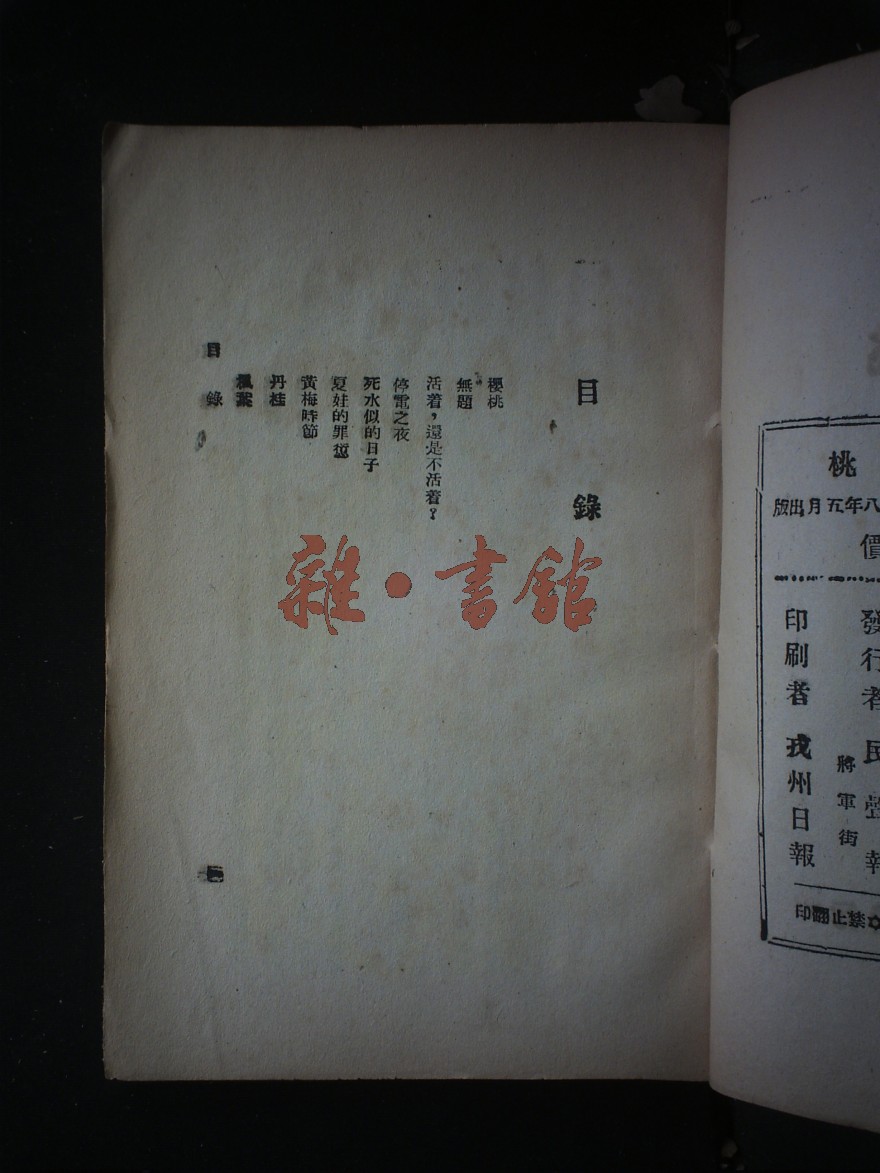 桃
八年五月出版
價
發行者 民聲報
將軍街
印刷者 戎州日報
禁止翻印
目錄
櫻桃
無題
活着，還是不活着？
停電之夜
死水似的日子
夏娃的罪愆
黃梅時節
丹桂
楓葉
目錄
雜·書館